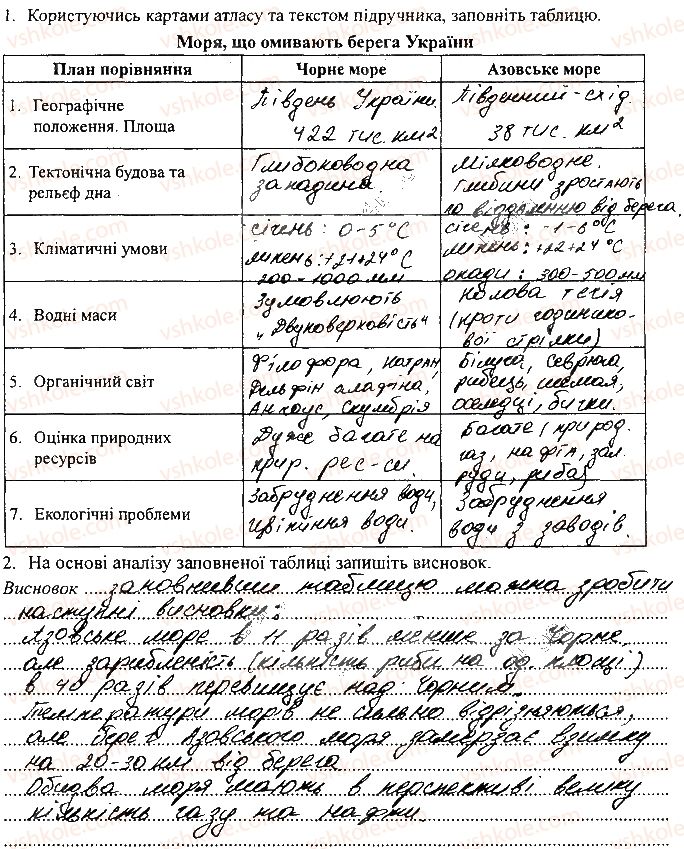 1. Користуючись картами атласу та текстом підручника, заповніть таблицю.
Моря, що омивають берега України
План порівняння Чорне море Азовське море
1. Географічне положення. Площа
Південь України.
422 тис. км2
Південний-схід
38 тис. км2
2. Тектонічна будова та рельєф дна
Глибоководна
западина.
Мілководне.
Глибини зростають
по віддаленню від берега.
3. Кліматичні умови
січень: 0-5°C
липень: +21+24°C
200-1000мм
січень: -1-6°C
липень: +22+24°C
опади: 300-500мм
4. Водні маси
Зумовлюють
"Двуповерховість"
Колова течія
(проти годинико-
вої стрілки)
5. Органічний світ
Філофора, катран,
Дельфін
Анчоус, Скумбрія
Білуга, севрюга,
рибець, шемая,
оселедці, бички.
6. Оцінка природних ресурсів
Дуже багате на
прир. рес-си.
Багате (природ.
газ, нафта, зал.
руди, риба)
7. Екологічні проблеми
Забруднення води,
цвітіння води.
Забруднення
води з заводів.
2. На основі аналізу заповненої таблиці запишіть висновок.
Висновок заповнивши таблицю можна зробити
наступні висновки:
Азовське море в 11 разів менше за Чорне,
але зарибленість (кількість риби на од. площі)
в 40 разів перевищує над Чорним.
Температури морів не сильно відрізняються,
але берег Азовського моря замерзає взимку
на 20-30 км від берега
Обидва моря мають в перспективі велику
кількість газу та нафти.
vshkole.com